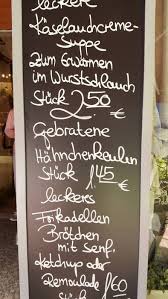 leckere
Käselauchcreme-
Suppe
zum Erwärmen
im Wurstschlauch
Stück 2.50
€
Gebratene
Hähnchenkeulen
Stück 1.45
€
leckers
Frikadellen
Brötchen
mit Senf,
Ketchup oder
Remoulade 1,60
Stück €